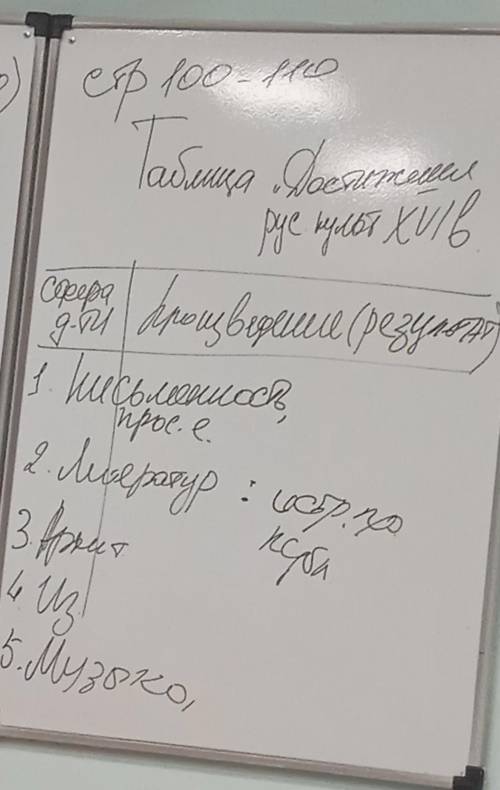 стр 100-110
Таблица „Достижения
рус культ XVII в
сфера д-ти
произведение (результат)
1. Письменность,
прос.е.
2. Литератур :
3. Архит
4. Из
5. Музыка,